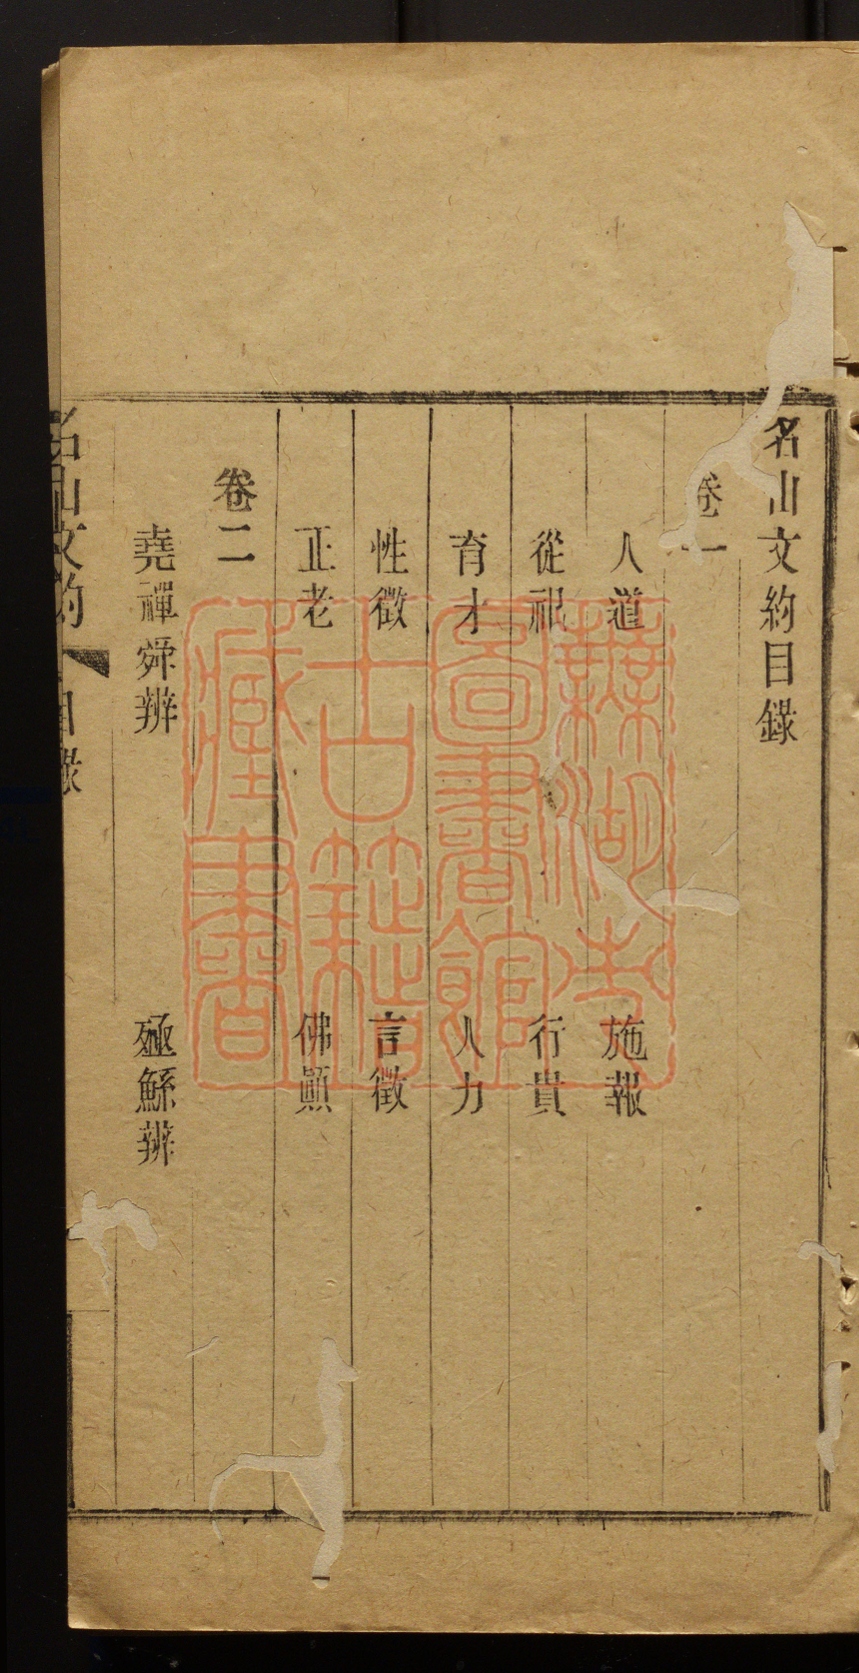 名山文約目錄
卷一
人道 施報
從祀 行貴
育才 人力
性徵 言徵
正老 佛顚
卷二
堯禪舜辨 殛鯀辨
名山文約 目錄
蕪湖市
圖書館
古籍
藏書